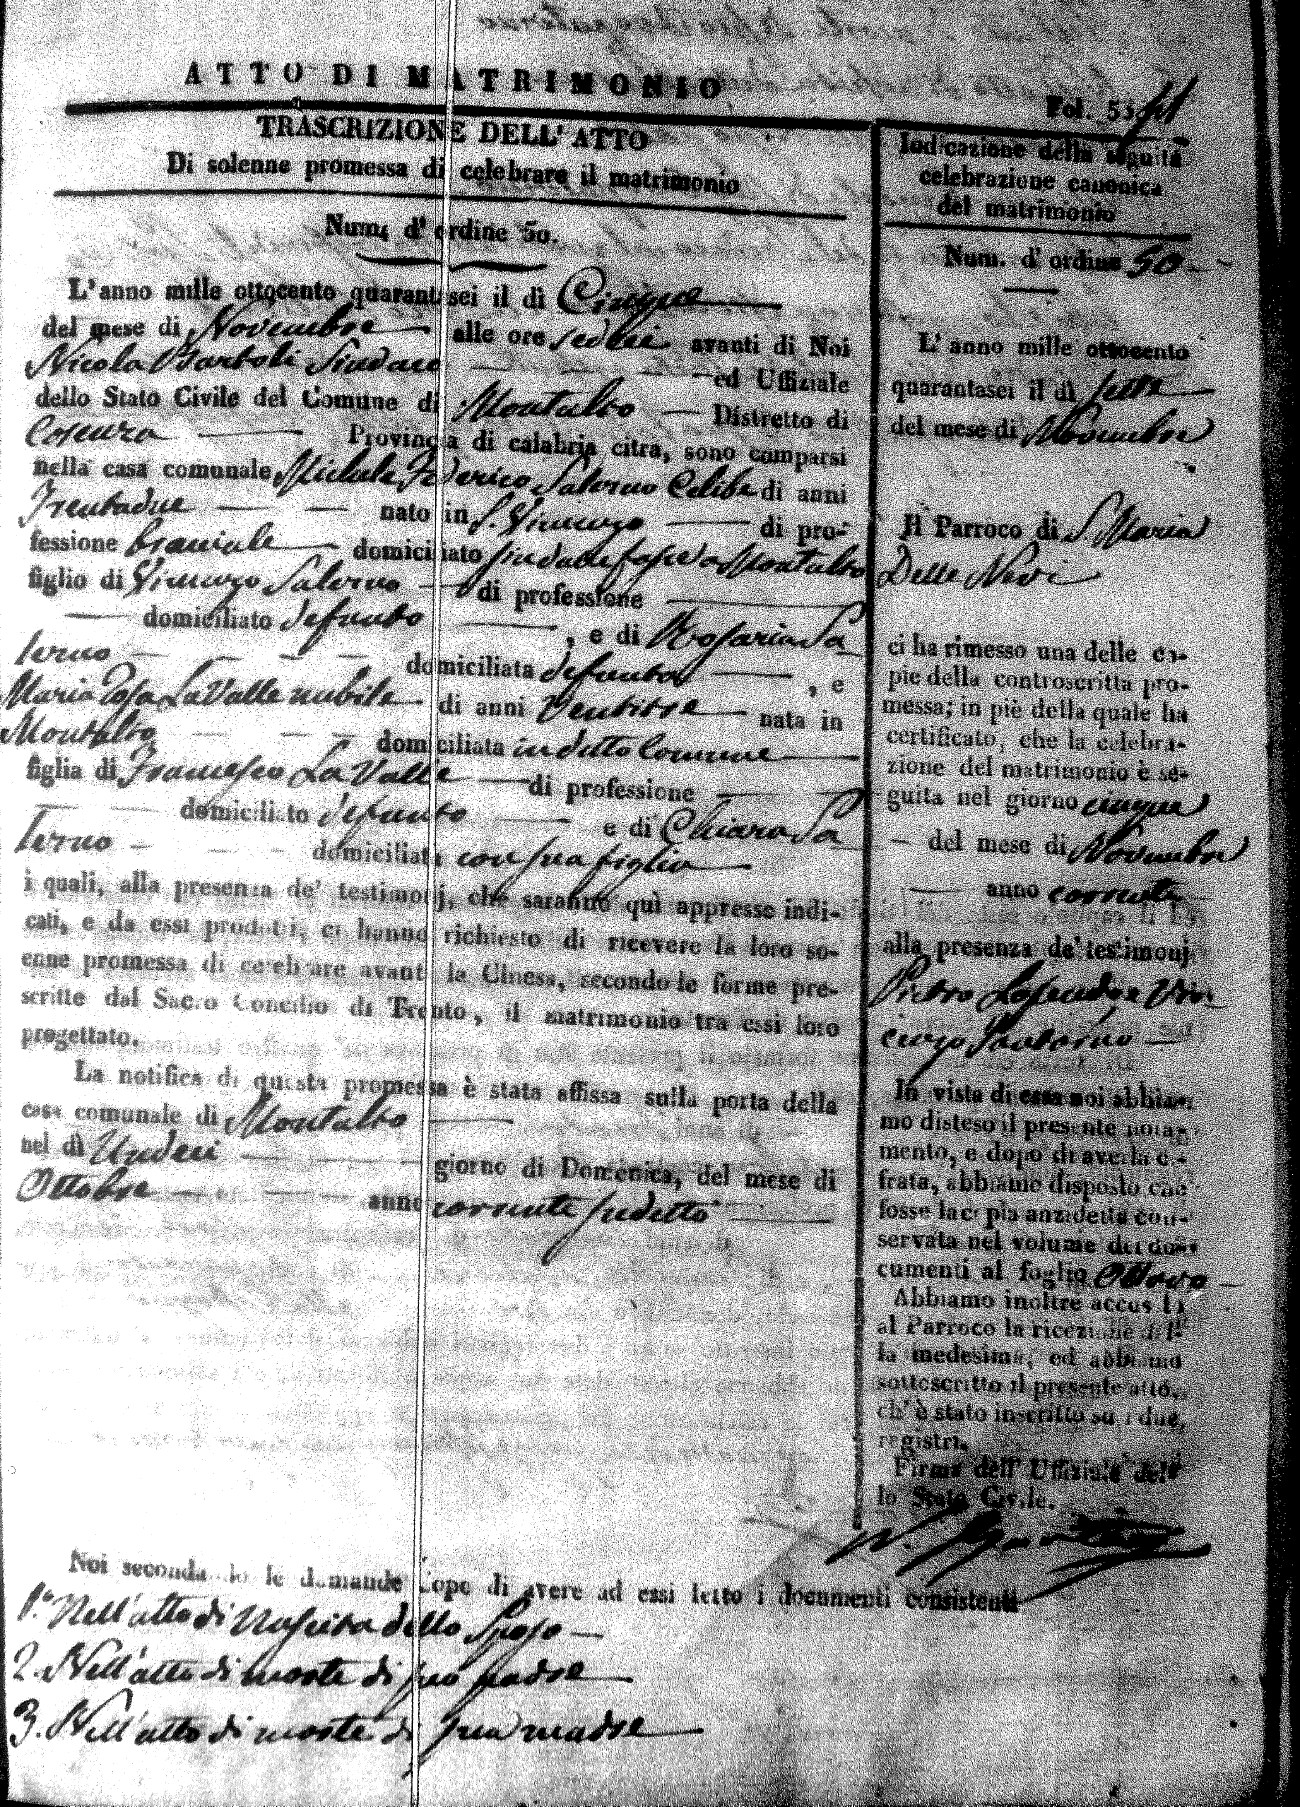 ATTO DI MATRIMONIO
Fol. 55
TRASCRIZIONE DELL' ATTO
Di solenne promessa di celebrare il matrimonio
Num. d' ordine 50.
L'anno mille ottocento quarantasei il dì Cinque
del mese di Novembre alle ore sedici avanti di Noi
Nicola Bartoli Sindaco ed Uffiziale
dello Stato Civile del Comune di Montalto Distretto di
Cosenza Provincia di calabria citra, sono comparsi
nella casa comunale Michele Federico Salerno Celibe di anni
Trentadue nato in S. Vincenzo di pro-
fessione domiciliato Montalto
figlio di Vincenzo Salerno di professione
domiciliato defunto , e di Rosaria Sa
lerno domiciliata defunta , e
Maria Rosa La Valle nubile di anni Ventitre nata in
Montalto domiciliata in detto Comune
figlia di Francesco La Valle di professione
domiciliato defunto e di Chiara Sa
lerno domiciliata con sua figlia
i quali, alla presenza de' testimonj, che saranno quì appresse indi-
cati, e da essi prodotti, ci hanno richiesto di ricevere la loro so-
enne promessa di celebrare avanti la Chiesa, secondo le forme pre-
scritte dal Sacro Concilio di Trento, il matrimonio tra essi loro
progettato.
La notifica di questa promessa è stata affissa sulla porta della
casa comunale di Montalto
nel dì Undeci giorno di Domenica, del mese di
Ottobre anno corrente sudetto
Noi seconda le domande dopo di avere ad essi letto i documenti consistenti
1.° Nell'atto di Nascita dello Sposo
2. Nell'atto di morte di suo padre
3. Nell'atto di morte di sua madre
Indicazione della seguita
celebrazione canonica
del matrimonio
Num. d' ordine 50
L' anno mille ottocento
quarantasei il dì Sette
del mese di Novembre
Il Parroco di S. Maria
Delle Nevi
ci ha rimesso una delle co-
pie della controscritta pro-
messa; in piè della quale ha
certificato, che la celebra-
zione del matrimonio è se-
guita nel giorno cinque
del mese di Novembre
anno corrente
alla presenza de' testimonj
Pietro Vin
cenzo Santoro
In vista di essa noi abbia-
mo disteso il presente notag-
mento, e dopo di averla ci-
frata, abbiamo disposto che
fosse la copia anzidetta con-
servata nel volume dei do-
cumenti al foglio Ottavo
Abbiamo inoltre accusata
al Parroco la ricezione del-
la medesima, ed abbiamo
sottoscritto il presente atto,
ch' è stato inscritto su i due
registri.
Firma dell' Uffiziale del-
lo Stato Civile.
N. Bartoli